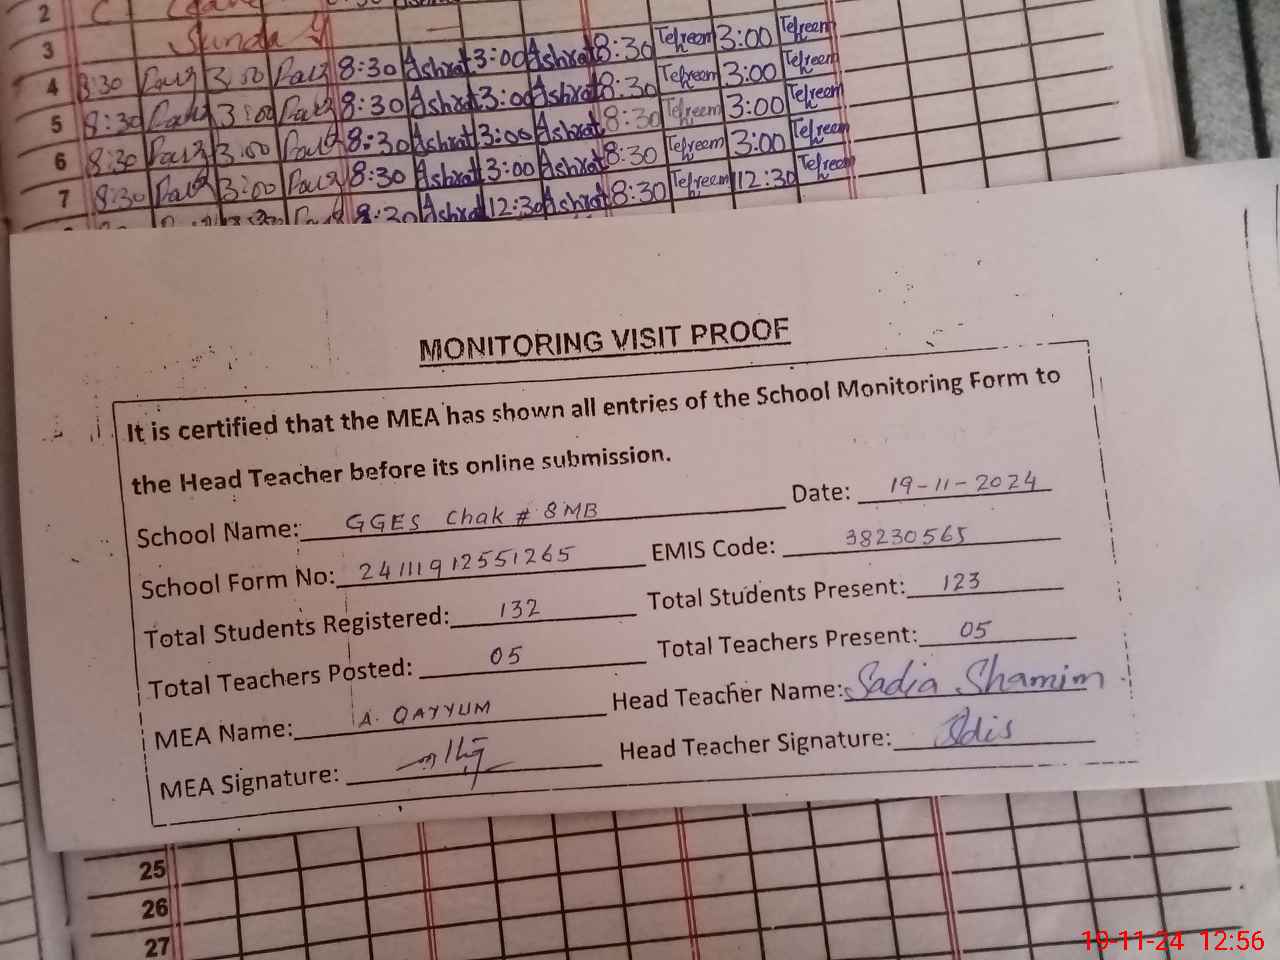 2
3 Sunday
4 8:30 3:00 8:30 Ashraf 3:00 Ashraf 8:30 Tehreem 3:00 Tehreem
5 8:30 3:00 8:30 Ashraf 3:00 Ashraf 8:30 Tehreem 3:00 Tehreem
6 8:30 3:00 8:30 Ashraf 3:00 Ashraf 8:30 Tehreem 3:00 Tehreem
7 8:30 3:00 8:30 Ashraf 3:00 Ashraf 8:30 Tehreem 3:00 Tehreem
8:30 Ashraf 12:30 Ashraf 8:30 Tehreem 12:30 Tehreem
MONITORING VISIT PROOF
It is certified that the MEA has shown all entries of the School Monitoring Form to
the Head Teacher before its online submission.
School Name: GGES Chak # 8MB Date: 19-11-2024
School Form No: 24111912551265 EMIS Code: 38230565
Total Students Registered: 132 Total Students Present: 123
Total Teachers Posted: 05 Total Teachers Present: 05
MEA Name: A. QAYYUM Head Teacher Name: Sadia Shamim
MEA Signature: Head Teacher Signature:
25
26
27
19-11-24 12:56